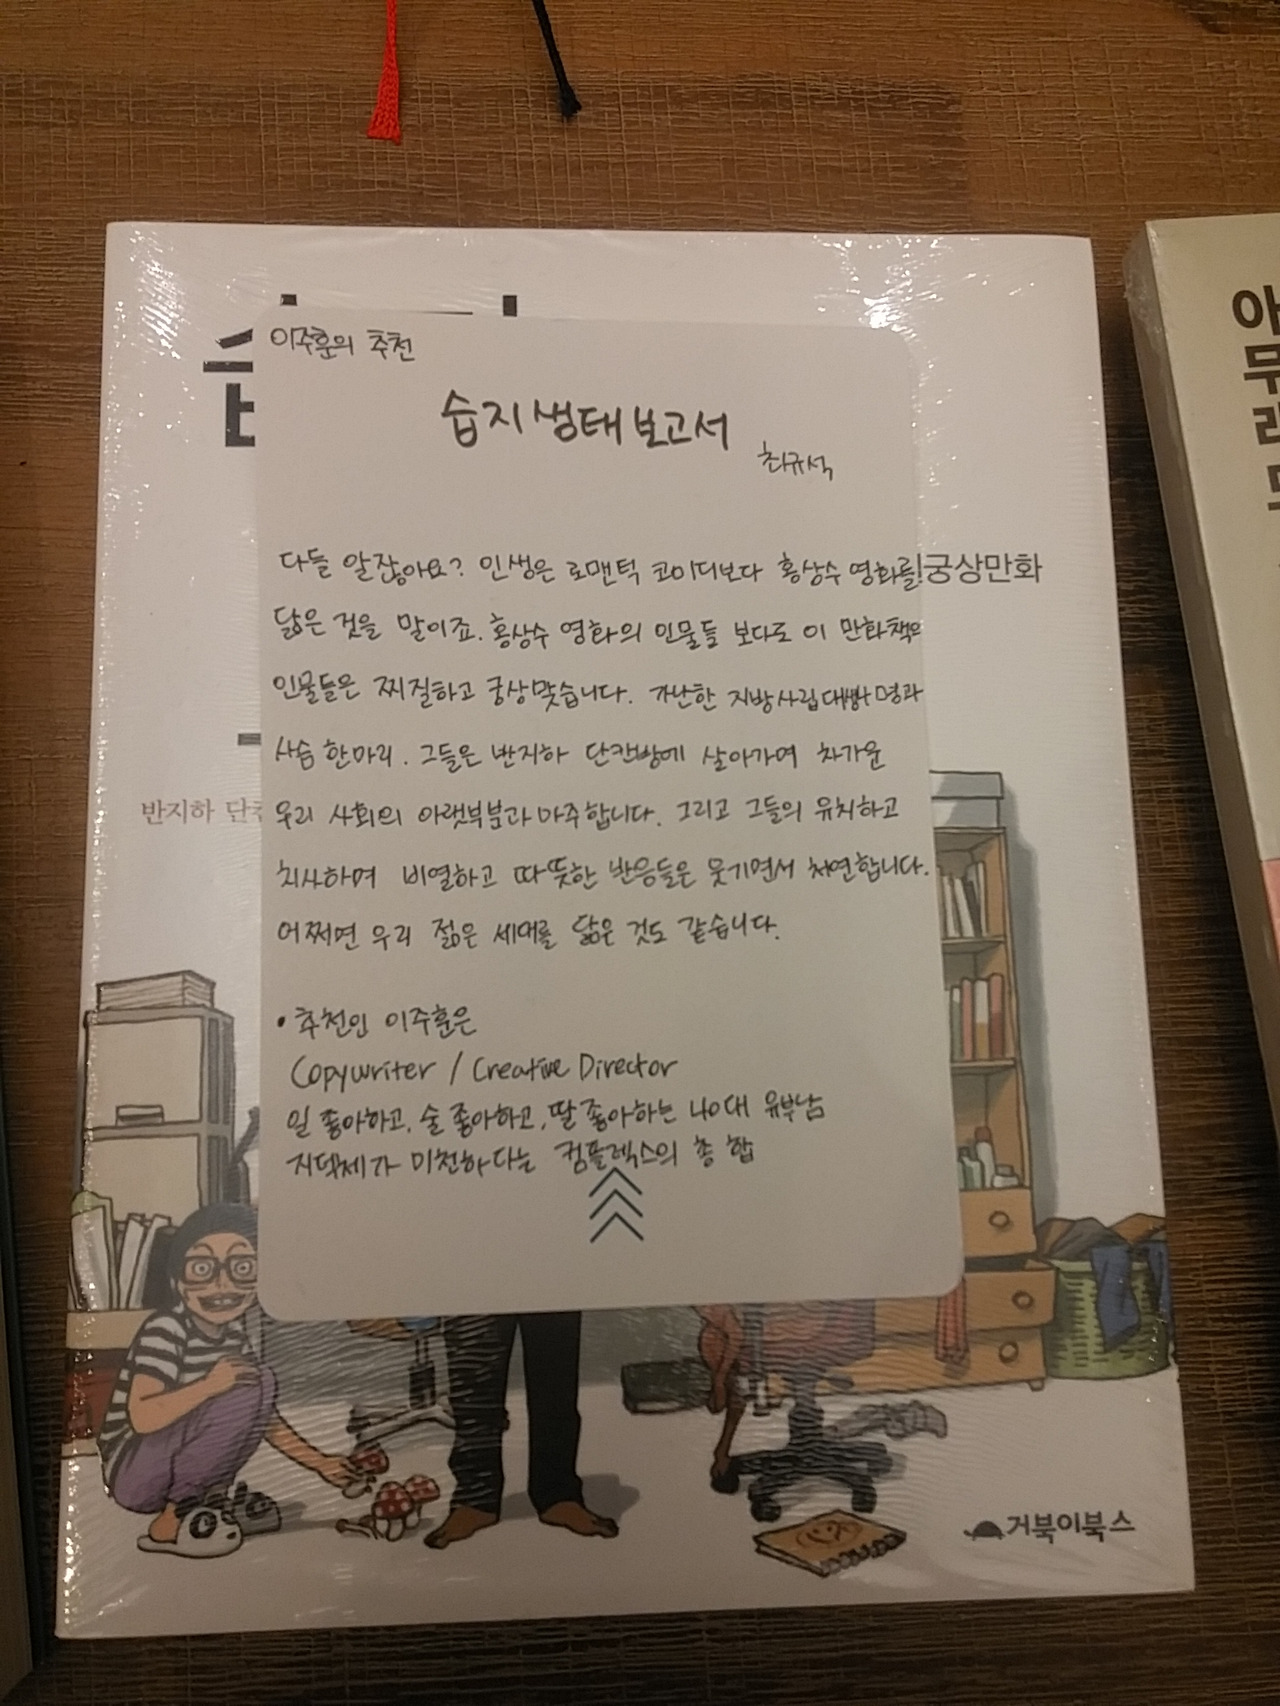 이주훈의 추천
습지생태보고서
최규석
다들 알잖아요? 인생은 로맨틱 코미디보다 홍상수 영화를
닮은 것을 말이죠. 홍상수 영화의 인물들 보다도 이 만화책의
인물들은 찌질하고 궁상맞습니다. 가난한 지방사립대생 명과
사슴 한마리. 그들은 반지하 단칸방에 살아가며 차가운
우리 사회의 아랫부분과 마주합니다. 그리고 그들의 유치하고
치사하며 비열하고 따뜻한 반응들은 웃기면서 처연합니다.
어쩌면 우리 젊은 세대를 닮은 것도 같습니다.
• 추천인 이주훈은
Copywriter / Creative Director
일 좋아하고, 술 좋아하고, 딸 좋아하는 40대 유부남
지덕체가 미천하다는 컴플렉스의 총 합
궁상만화
반지하 단칸
거북이북스
아무래도